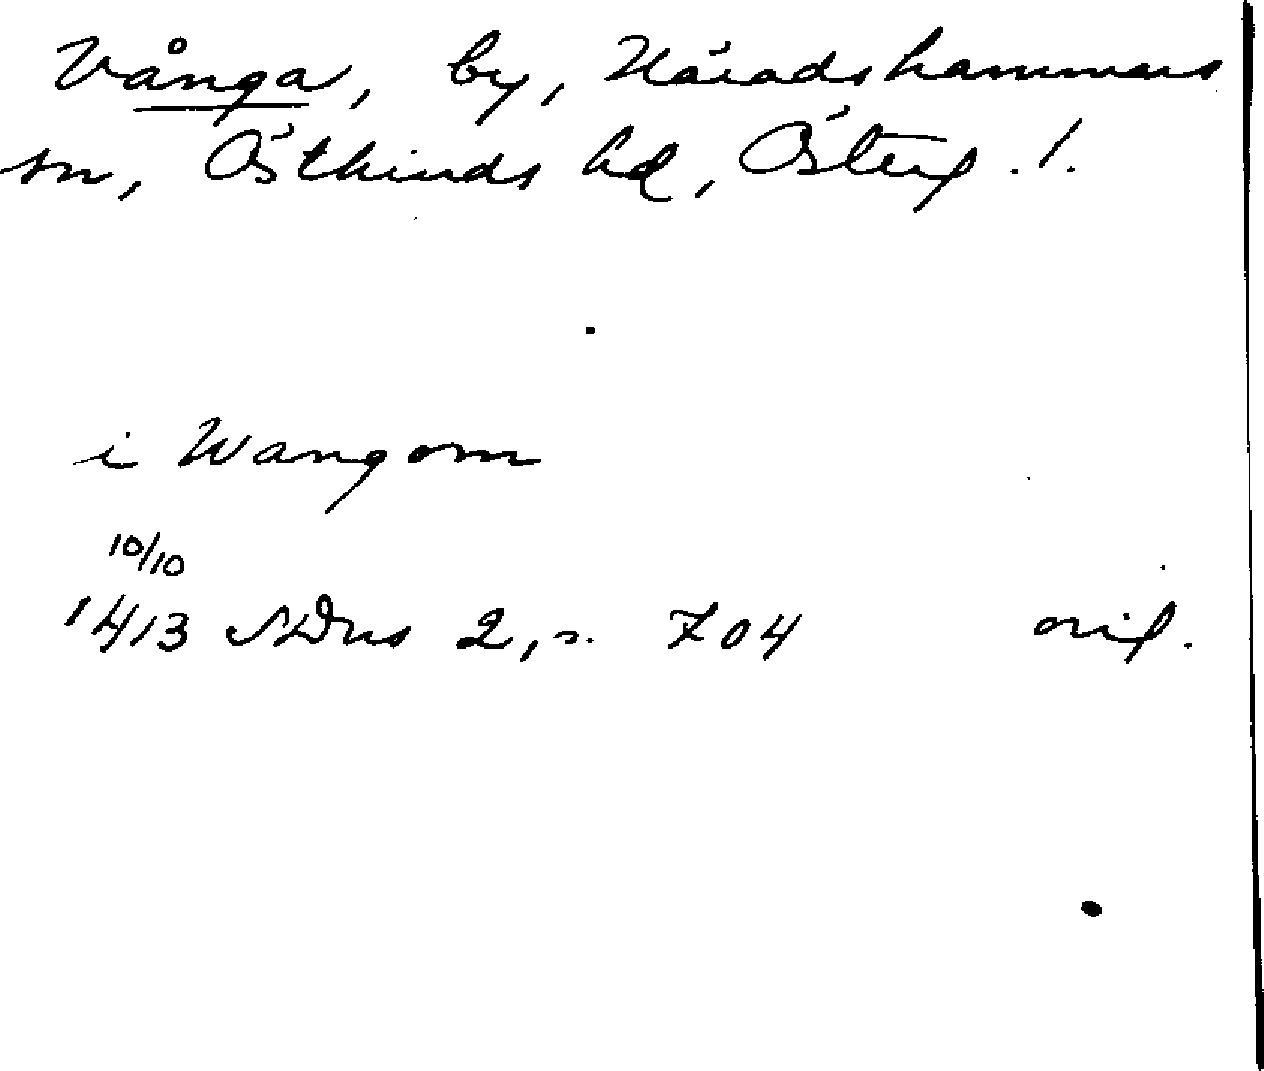 Vånga, by, Häradshammars
sn, Östkinds hd, Österg. l.
i Wangom
10/10
1413 SDns 2, s. 704 orig.